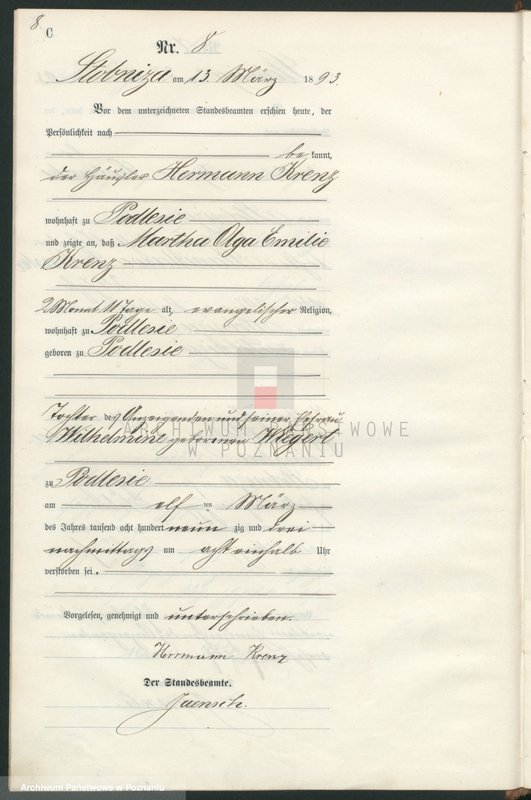 8
C
Nr. 8.
Stobniza am 13. März 1893.
Vor dem unterzeichneten Standesbeamten erschien heute, der
Persönlichkeit nach
bekannt,
der Häusler Hermann Krenz
wohnhaft zu Podlesie
und zeigte an, daß Martha Olga Emilie
Krenz
2 Monat 11 Tage alt, evangelischer Religion,
wohnhaft zu Podlesie
geboren zu Podlesie
Tochter des Anzeigenden und seiner Ehefrau
Wilhelmine geborenen Wiegert
ARCHIWUM PAŃSTWOWE
W POZNANIU
zu Podlesie
am elf ten März
des Jahres tausend acht hundert neun zig und drei
nachmittags um acht einhalb Uhr
verstorben sei.
Vorgelesen, genehmigt und unterschrieben.
Herrmann Krenz
Der Standesbeamte.
Jaensch.
Archiwum Państwowe w Poznaniu